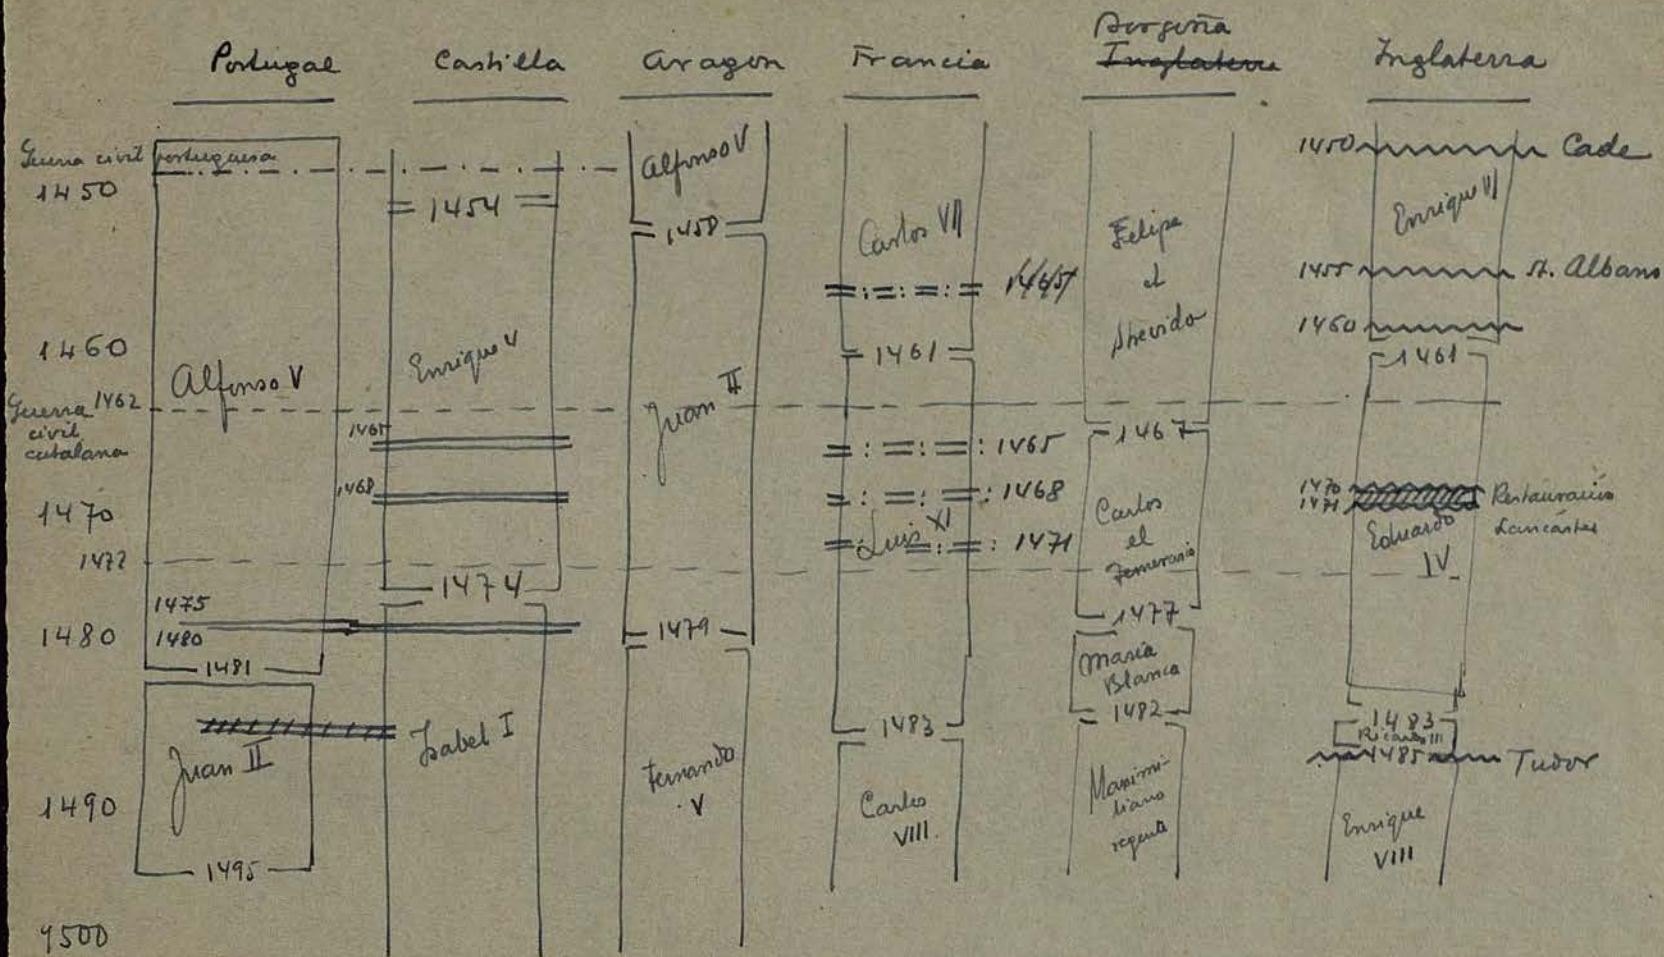 Portugal
Castilla
Aragon
Francia
Borgoña
Inglaterra
Inglaterra
Guerra civil portuguesa
1450
Alfonso V
1460
Guerra 1462
civil
catalana
1470
1472
1475
1480
1480
1481
Juan II
1490
1495
1500
1454
Enrique V
1465
1468
1474
Isabel I
Alfonso V
1458
Juan II
1479
Fernando
V
Carlos VII
1461
1465
1468
Luis XI
1471
1483
Carlos
VIII
Felipe
el
Atrevido
1467
Carlos
el
Temerario
1477
María
Blanca
1482
Maximi-
liano
regente
1450 Cade
Enrique VI
1455 St. Albans
1460
1461
1470
1471
Restauración
Lancáster
Eduardo
IV
1483
Ricardo III
1485 Tudor
Enrique
VIII